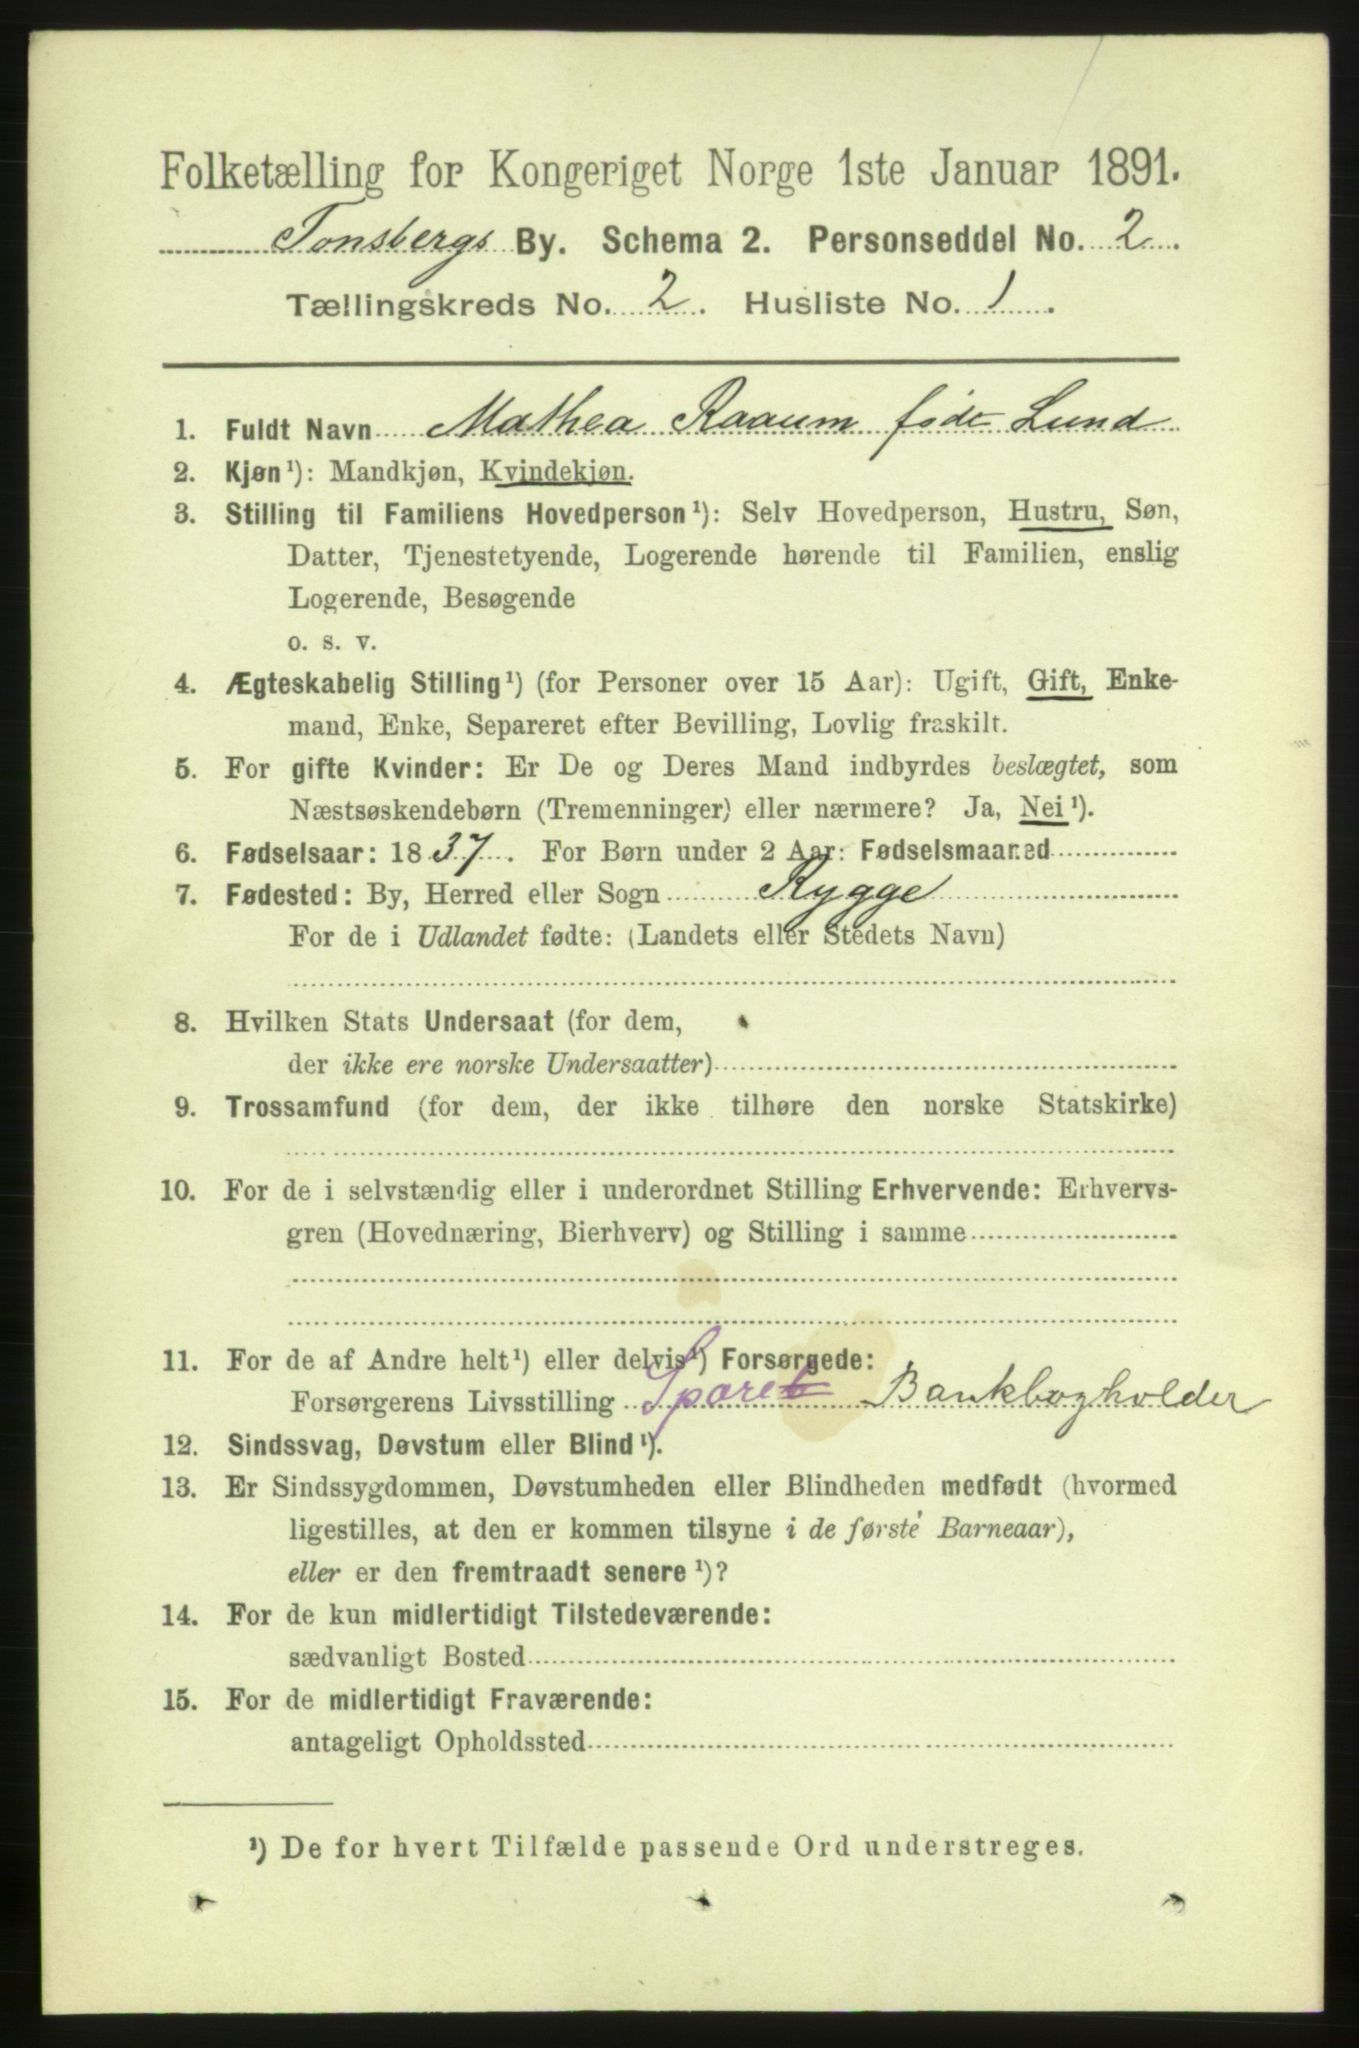 Folketælling for Kongeriget Norge 1ste Januar 1891.
Tonsbergs By. Schema 2. Personseddel No. 2.
Tællingskreds No. 2. Husliste No. 1.
1. Fuldt Navn Mathea Raaum føde Lund
2. Kjøn¹): Mandkjøn, Kvindekjøn.
3. Stilling til Familiens Hovedperson¹): Selv Hovedperson, Hustru, Søn,
Datter, Tjenestetyende, Logerende hørende til Familien, enslig
Logerende, Besøgende
o. s. v.
4. Ægteskabelig Stilling¹) (for Personer over 15 Aar): Ugift, Gift, Enke-
mand, Enke, Separeret efter Bevilling, Lovlig fraskilt.
5. For gifte Kvinder: Er De og Deres Mand indbyrdes beslægtet, som
Næstsøskendebørn (Tremenninger) eller nærmere? Ja, Nei¹).
6. Fødselsaar: 1837. For Børn under 2 Aar: Fødselsmaaned
7. Fødested: By, Herred eller Sogn Rygge
For de i Udlandet fødte: (Landets eller Stedets Navn)
8. Hvilken Stats Undersaat (for dem,
der ikke ere norske Undersaatter)
9. Trossamfund (for dem, der ikke tilhøre den norske Statskirke)
10. For de i selvstændig eller i underordnet Stilling Erhvervende: Erhvervs-
gren (Hovednæring, Bierhverv) og Stilling i samme
11. For de af Andre helt¹) eller delvis¹) Forsørgede:
Forsørgerens Livsstilling Spareb Bankbogholder
12. Sindssvag, Døvstum eller Blind¹).
13. Er Sindssygdommen, Døvstumheden eller Blindheden medfødt (hvormed
ligestilles, at den er kommen tilsyne i de første Barneaar),
eller er den fremtraadt senere¹)?
14. For de kun midlertidigt Tilstedeværende:
sædvanligt Bosted
15. For de midlertidigt Fraværende:
antageligt Opholdssted
¹) De for hvert Tilfælde passende Ord understreges.